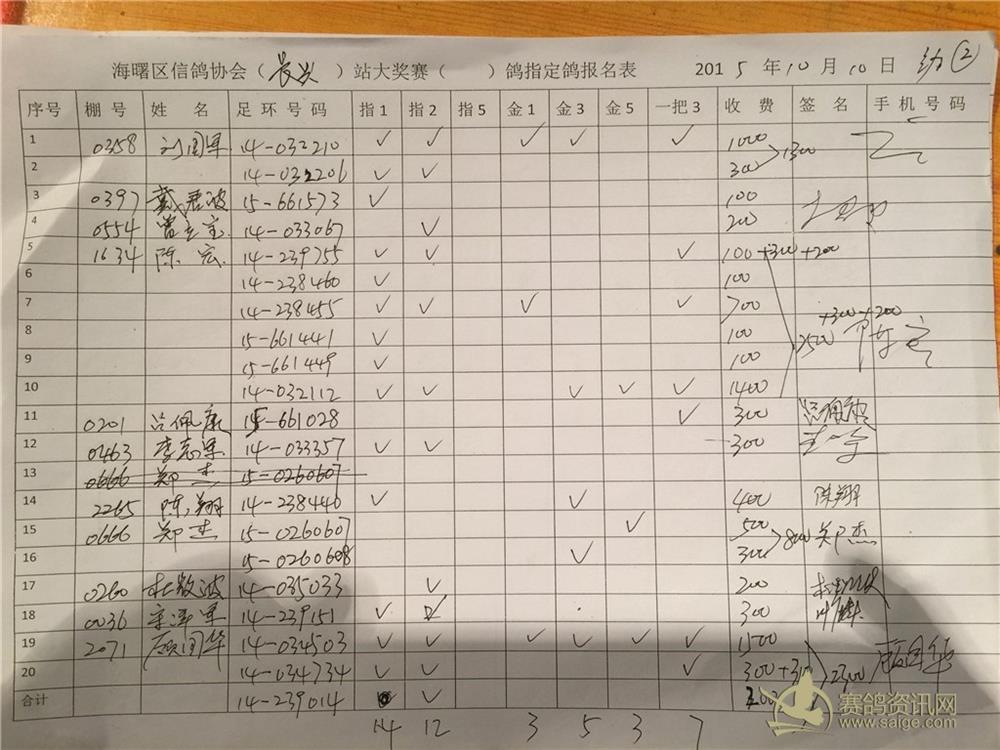 幼②
海曙区信鸽协会（长兴）站大奖赛（ ）鸽指定鸽报名表 2015年10月10日
序号 棚号 姓名 足环号码 指1 指2 指5 金1 金3 金5 一把3 收费 签名 手机号码
1 0358 刘国军 14-032210 ✓ ✓ ✓ ✓ ✓ 1000
2 14-032206 ✓ ✓ 300 >1300
3 0397 戴君波 15-661573 ✓ 100
4 0554 曾立宝 14-033067 ✓ 200
5 1634 陈宏 14-239755 ✓ ✓ ✓ 100+300+200
6 14-238460 ✓ 100
7 14-238455 ✓ ✓ ✓ ✓ 700
8 15-661441 ✓ 100 2500+300+200 陈宏
9 15-661449 ✓ 100
10 14-032112 ✓ ✓ ✓ ✓ ✓ 1400
11 0201 吕佩康 15-661028 ✓ 300
12 0463 李志军 14-033357 ✓ ✓ 300
13 0666 郑杰 15-0260607
14 2265 陈翔 14-238440 ✓ ✓ 400 陈翔
15 0666 郑杰 15-0260607 ✓ 500
16 15-0260608 ✓ 300 >800 郑杰
17 0260 杜数波 14-035033 ✓ 200
18 0036 14-239151 ✓ ✓ 300
19 2071 顾国华 14-034503 ✓ ✓ ✓ ✓ ✓ ✓ 1500
20 14-034734 ✓ ✓ ✓ 300+300 >2300 顾国华
合计 14-239014 ✓ 200
14 12 3 5 3 7
赛鸽资讯网
www.saige.com